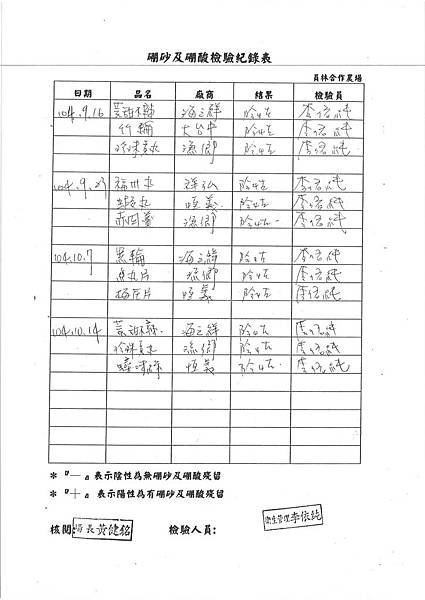 硼砂及硼酸檢驗紀錄表
員林合作農場
日期 品名 廠商 結果 檢驗員
104.9.16 海之鮮 陰性 李依純
竹輪 大台中 陰性 李依純
珍珠貢丸 漁鄉 陰性 李依純
104.9.23 福州丸 祥弘 陰性 李依純
蝦丸 恆義 陰性 李依純
漁鄉 陰性 李依純
104.10.7 黑輪 海之鮮 陰性 李依純
魚丸片 漁鄉 陰性 李依純
恆義 陰性 李依純
104.10.14 海之鮮 陰性 李依純
珍珠貢丸 漁鄉 陰性 李依純
恆義 陰性 李依純
* 『－』表示陰性為無硼砂及硼酸殘留
* 『＋』表示陽性為有硼砂及硼酸殘留
核閱: 場長黃健銘 檢驗人員: 衛生管理李依純